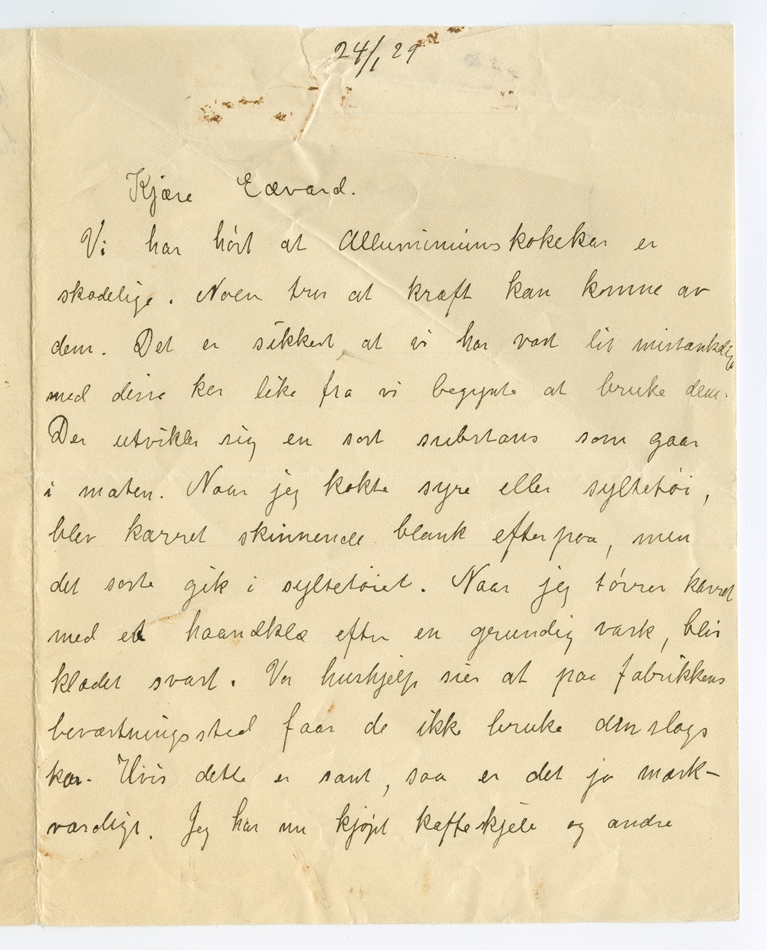 24/1 29
Kjære Edvard.
Vi har hørt at Alluminiumskokekar er
skadelige. Noen tror at kræft kan komme av
dem. Det er sikkert at vi har vært lit mistænkelig
med disse kar like fra vi begynte at bruke dem.
Der utvikler sig en sort substans som gaar
i maten. Naar jeg kokte syre eller syltetøi,
blev karret skinnende blank efterpaa, men
det sorte gik i syltetøiet. Naar jeg tørrer karret
med et haandklæ efter en grundig vask, blir
klædet svart. Vor hushjelp sier at paa fabrikkens
beværtningssted faar de ikke bruke denslags
kar. Hvis dette er sant, saa er det jo mærk-
værdigt. Jeg har nu kjøpt kaffekjele og andre